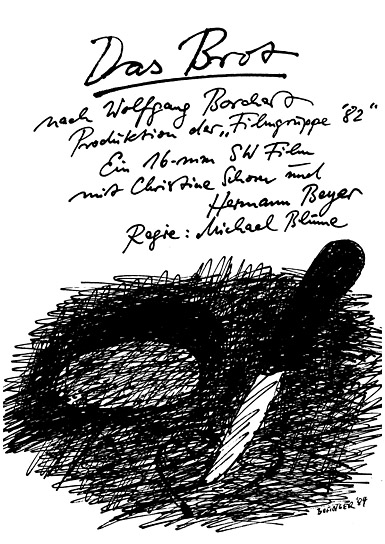 Das Brot
nach Wolfgang Borchert
Produktion der „Filmgruppe '82"
Ein 16-mm SW Film
mit Christine Schorn und
Hermann Beyer
Regie: Michael Blume
'84